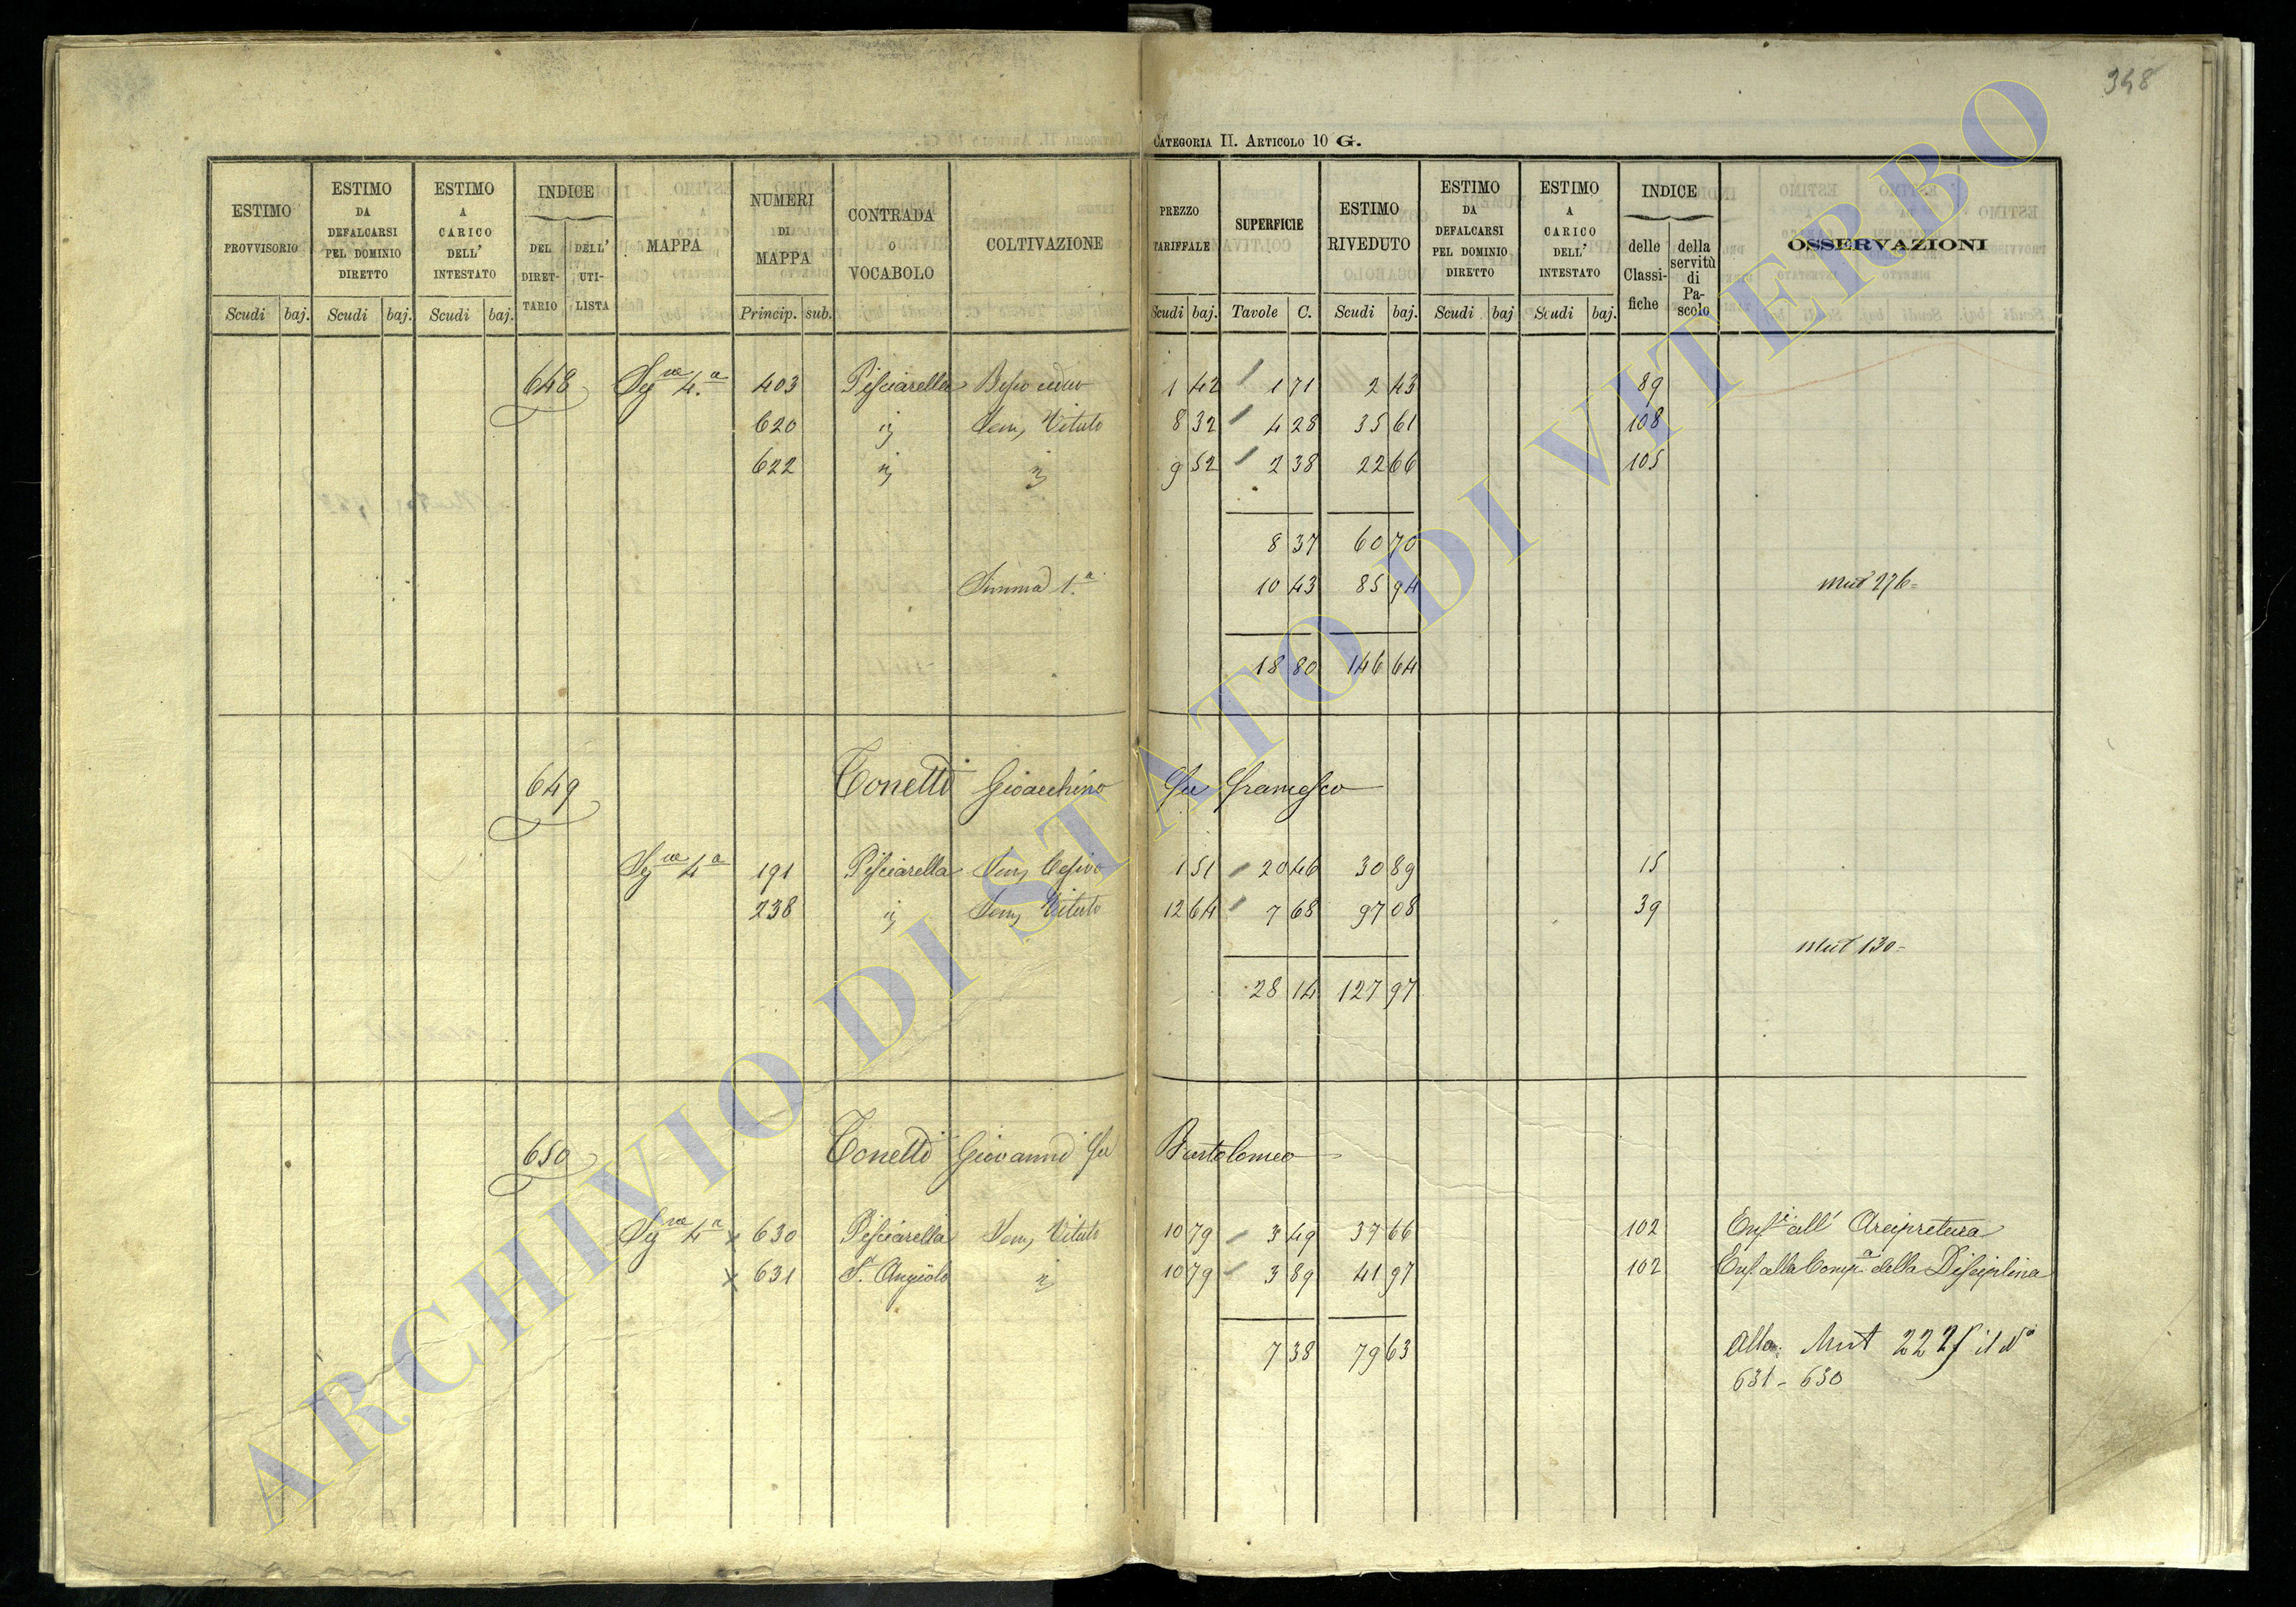 348
CATEGORIA II. ARTICOLO 10 G.
ESTIMO PROVVISORIO
ESTIMO DA DEFALCARSI PEL DOMINIO DIRETTO
ESTIMO A CARICO DELL' INTESTATO
INDICE
DEL DIRET-TARIO
DELL' UTI-LISTA
MAPPA
NUMERI DI MAPPA
CONTRADA O VOCABOLO
COLTIVAZIONE
PREZZO TARIFFALE
SUPERFICIE
ESTIMO RIVEDUTO
ESTIMO DA DEFALCARSI PEL DOMINIO DIRETTO
ESTIMO A CARICO DELL' INTESTATO
INDICE
delle Classi-fiche
della servitù di Pa-scolo
OSSERVAZIONI
Scudi baj. Scudi baj. Scudi baj. Princip. sub. Scudi baj. Tavole C. Scudi baj. Scudi baj Scudi baj.
648 Seg.ne 4.a 403 Pisciarella Bosco ceduo 1 42 1 71 2 43 89
620 Sem. Vitato 8 32 4 28 35 61 108
622 9 52 2 38 22 66 105
8 37 60 70
Somma 1.a 10 43 85 94 Mut 276=
18 80 146 64
649 Tonetti Gioacchino fu Francesco
Seg.ne 4.a 191 Pisciarella Sem. Cesivo 1 51 20 46 30 89 15
238 Sem. Vitato 12 64 7 68 97 08 39
Mut 130=
28 14 127 97
650 Tonetti Giovanni fu Bartolomeo
Seg.ne 4.a x 630 Pisciarella Sem. Vitato 10 79 3 49 37 66 102 Enf. all' Arcipretura
x 631 S. Angiolo 10 79 3 89 41 97 102 Enf. alla Comp.a della Disciplina
7 38 79 63
Alla Mut 222 il N.o
631 - 630
ARCHIVIO DI STATO DI VITERBO